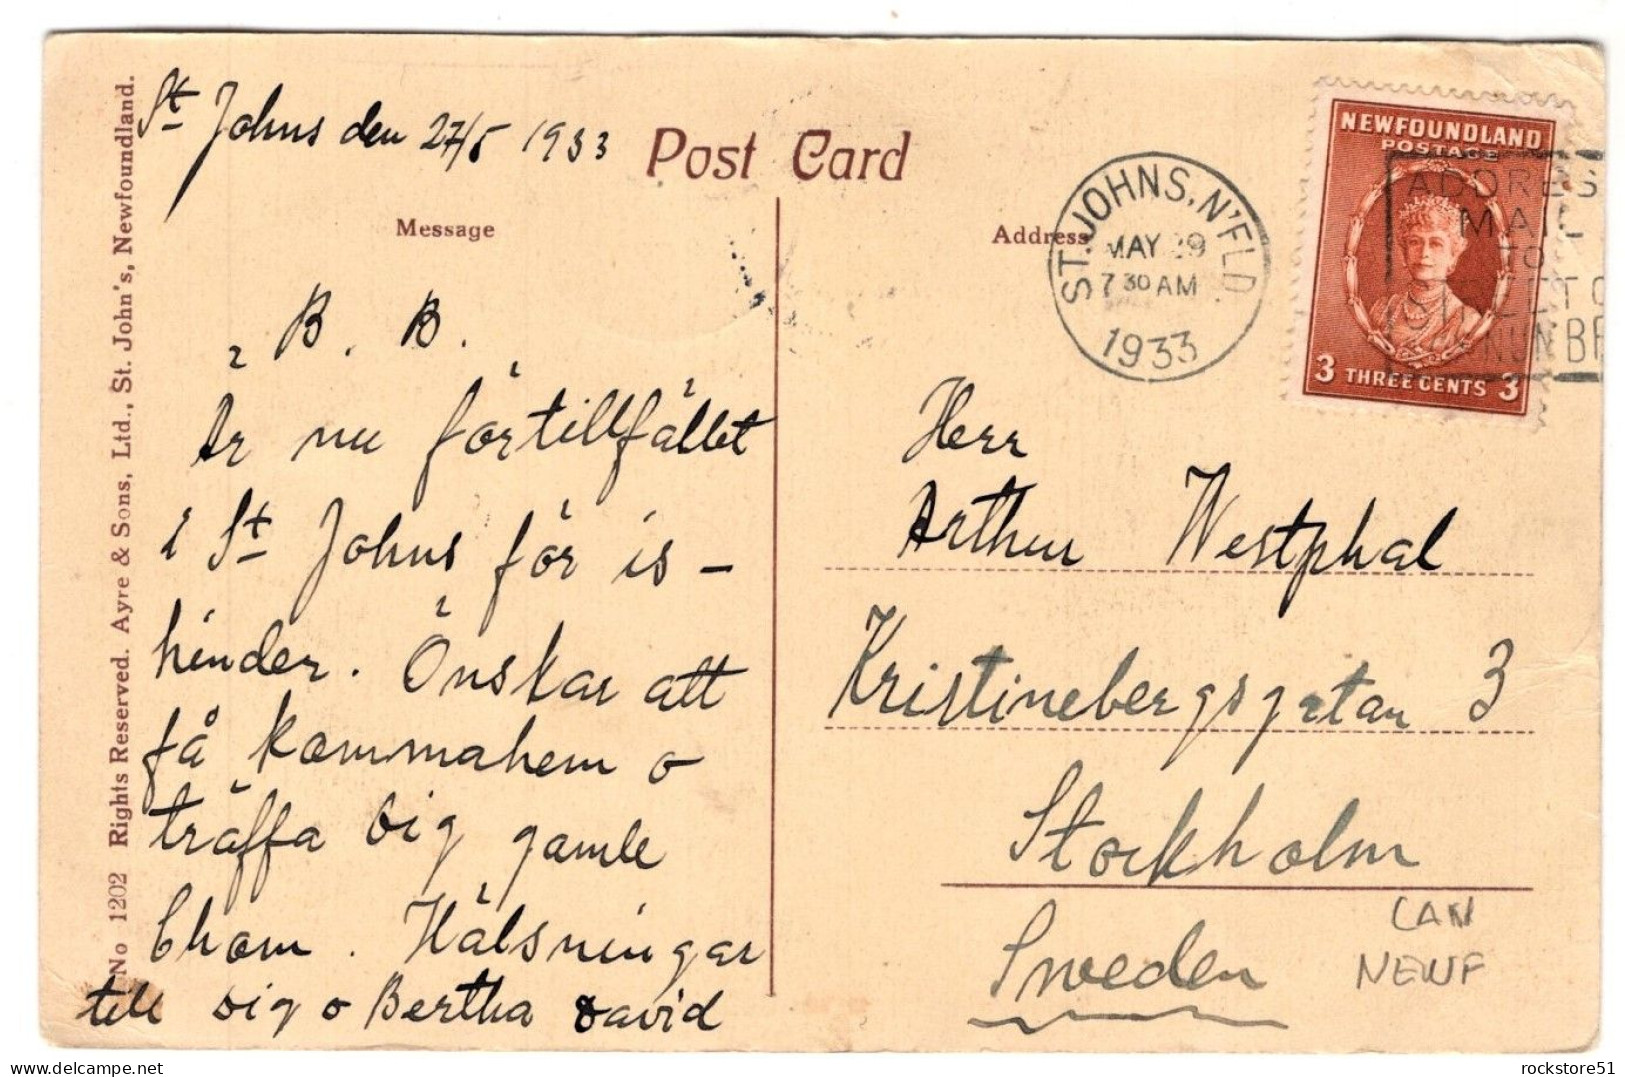 St Johns den 27/5 1933
Post Card
Message
Address
No 1202 Rights Reserved. Ayre & Sons, Ltd., St. John's, Newfoundland.
B. B.
Är nu för tillfället
i St Johns för is-
hinder. Önskar att
få komma hem o
träffa dig gamle
Chom. Hälsningar
till dig o Bertha David
ST. JOHNS, N'FLD.
MAY 29
7 30 AM
1933
ADDRES
MAIL
TO
STREET
NEWFOUNDLAND
POSTAGE
3 THREE CENTS 3
Herr
Arthur Westphal
Kristinebergsgatan 3
Stockholm
Sweden
CAN
NEWF
rockstore51